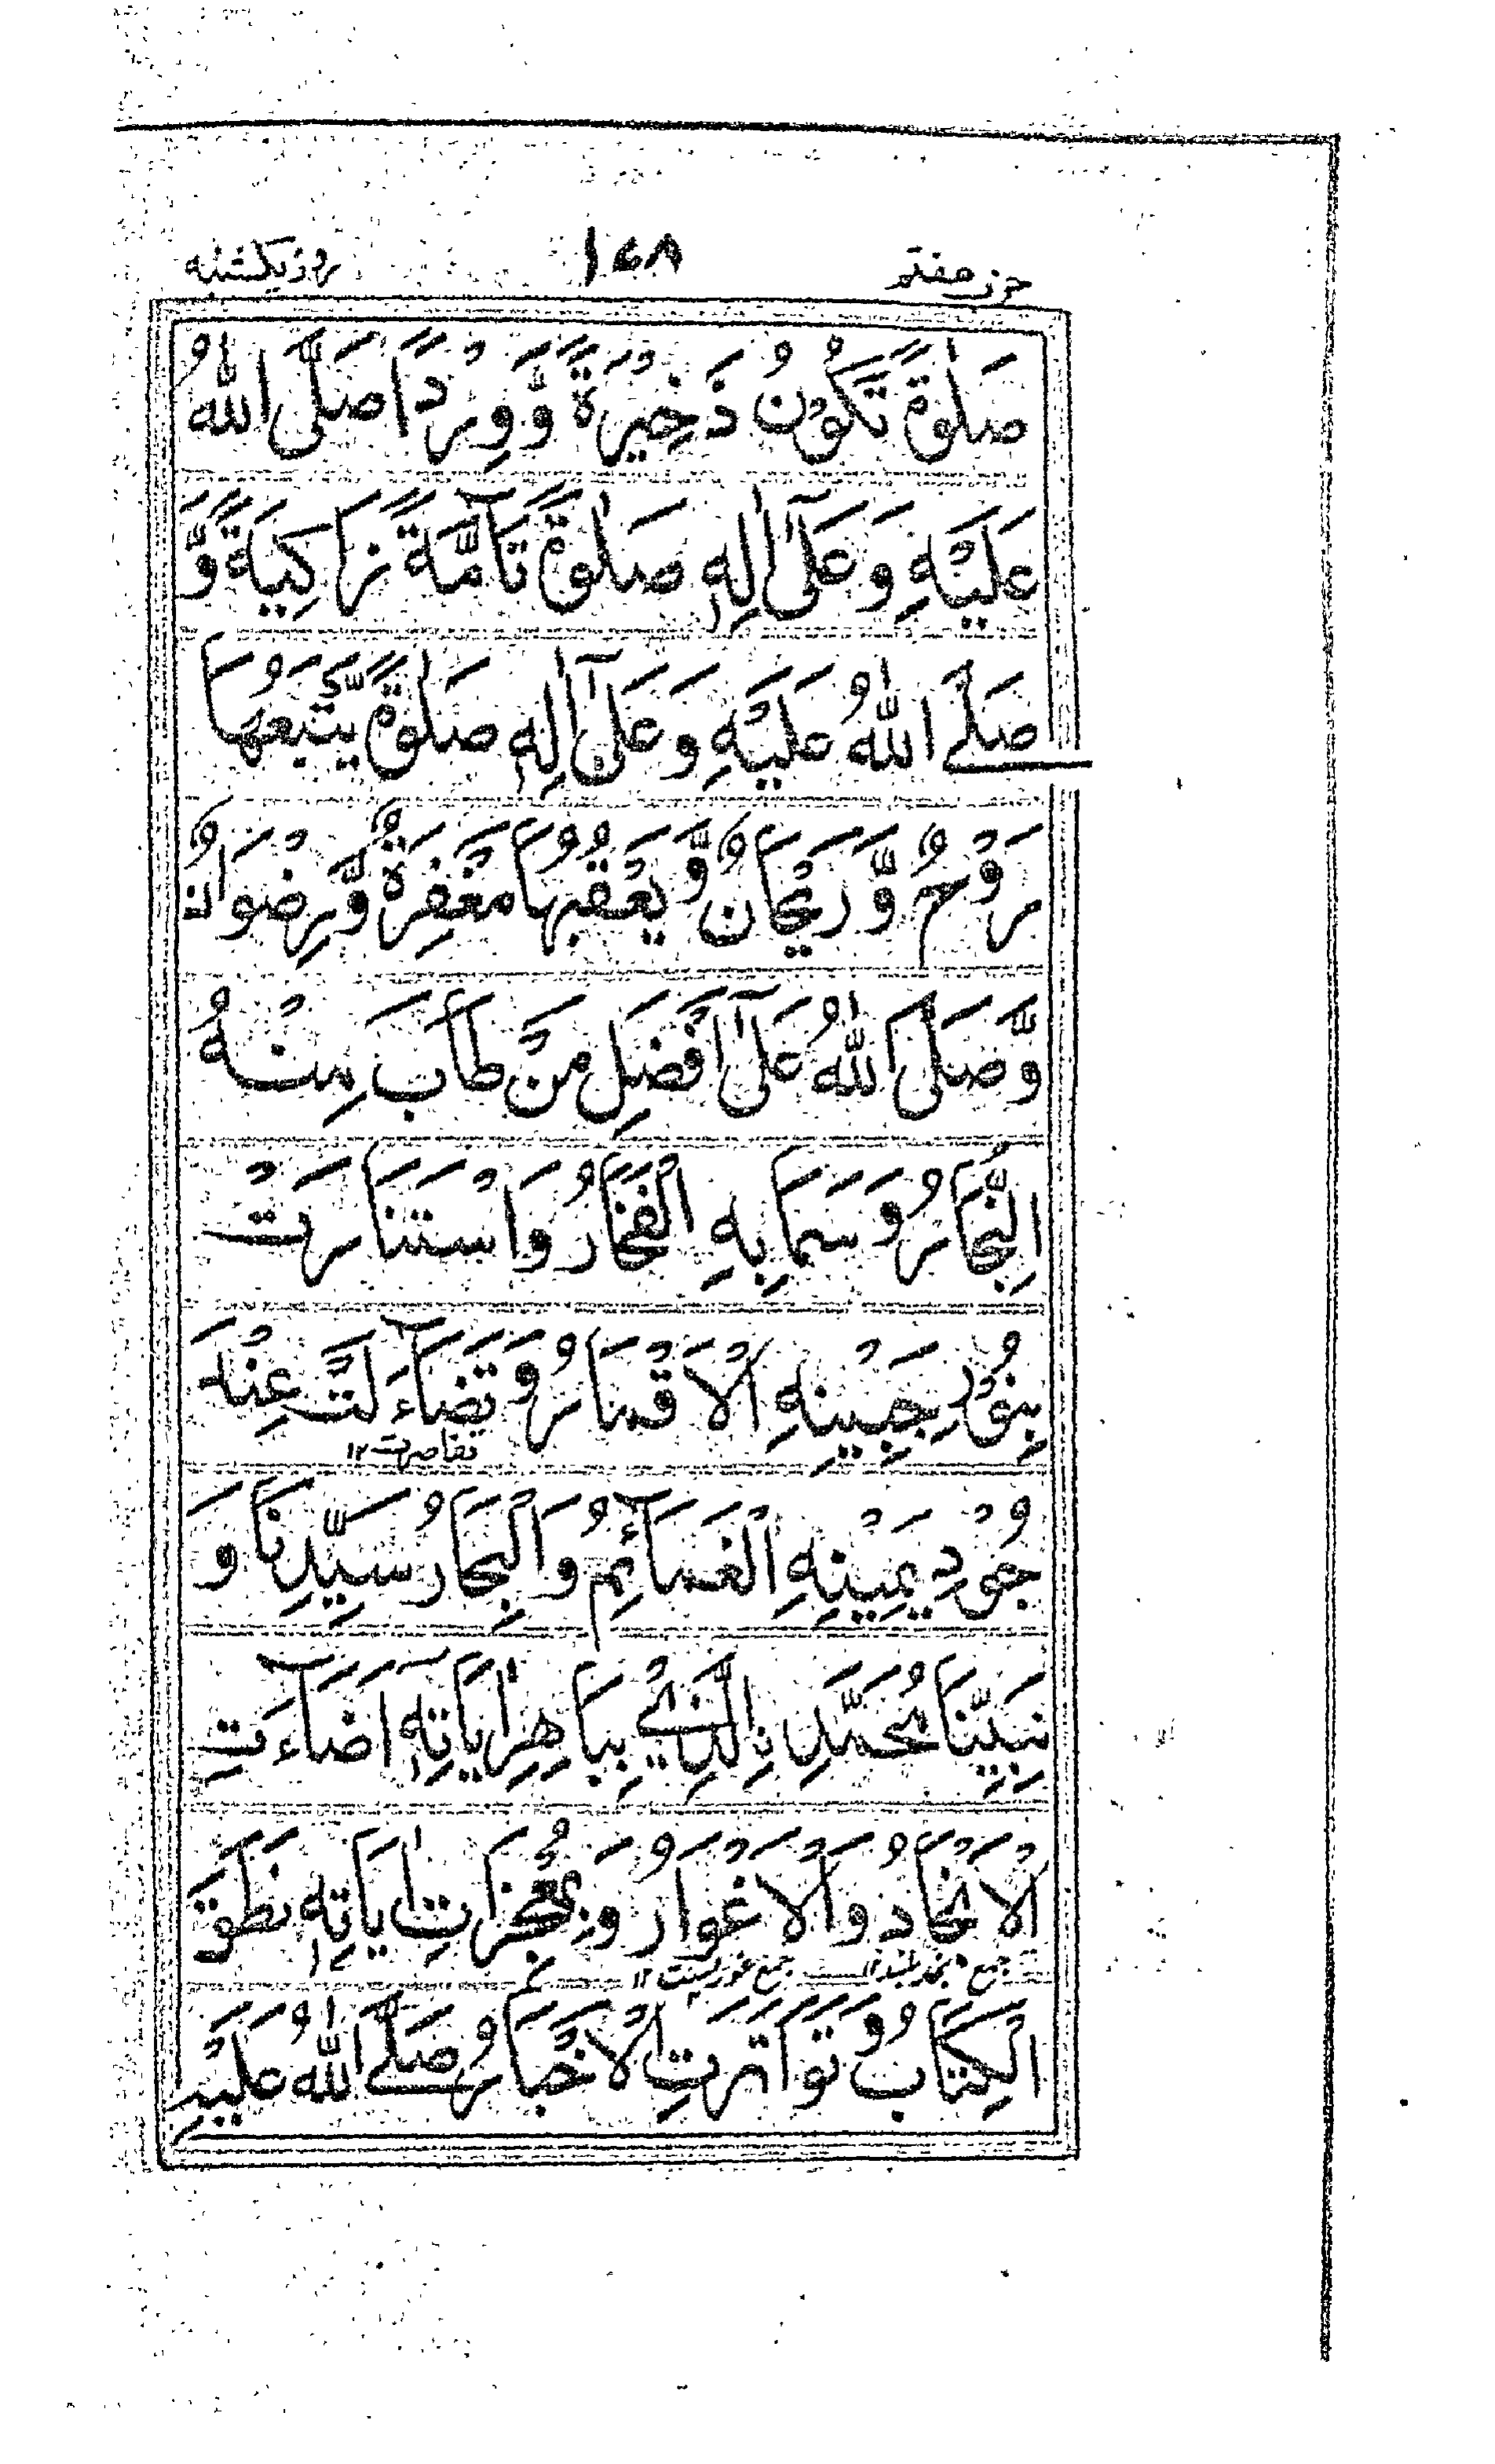 حزب هفتم ۱۶۸ روز یکشنبه
صَلٰوةً تَكُوْنُ ذَخِيْرَةً وَّوِرْدًا صَلَّى اللّٰهُ
عَلَيْهِ وَعَلٰٓى اٰلِهٖ صَلٰوةً تَآمَّةً زَاكِيَةً وَّ
صَلَّے اللّٰهُ عَلَيْهِ وَعَلٰٓى اٰلِهٖ صَلٰوةً يَّتْبَعُهَا
رَوْحٌ وَّرَيْحَانٌ وَّيَعْقُبُهَا مَغْفِرَةٌ وَّرِضْوَانٌ
وَّصَلَّى اللّٰهُ عَلٰٓى اَفْضَلِ مَنْ طَابَ مِنْهُ
النِّجَارُ وَسَمَا بِهِ الْفَخَارُ وَاسْتَنَارَتْ
بِنُوْرِ جَبِيْنِهِ الْاَقْمَارُ وَتَضَآءَلَتْ عِنْدَ
تقاصرت ۱۲
جُوْدِ يَمِيْنِهِ الْغَمَآئِمُ وَالْبِحَارُ سَيِّدِنَا وَ
نَبِيِّنَا مُحَمَّدِ نِ الَّذِيْ بِبَاهِرِ اٰيَاتِهٖٓ اَضَآءَتِ
الْاَنْجَادُ وَالْاَغْوَارُ وَبِمُعْجِزَاتِ اٰيَاتِهٖ نَطَقَ
جمع نجد بلند ۱۲ جمع غور پست ۱۲
الْكِتَابُ وَتَوَاتَرَتِ الْاَخْبَارُ صَلَّے اللّٰهُ عَلَيْهِ